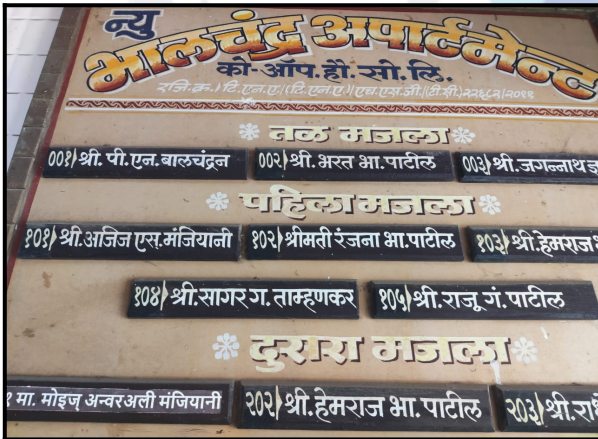 न्यु
भालचंद्र अपार्टमेन्ट
को-ऑप.हौ.सो.लि.
रजि.क्र.)टि.एन.ए/(टि.एन.ए)/एच.एस.जी/(टी.सी)२२६८२/२०११
तळ मजला
००१ श्री. पी.एन.बालचंद्रन ००२ श्री. भरत भा.पाटील ००३ श्री. जगन्नाथ
पहिला मजला
१०१ श्री.अजिज एस.मंजियानी १०२ श्रीमती रंजना भा.पाटील १०३ श्री.हेमराज
१०४ श्री.सागर ग. ताम्हणकर १०५ श्री.राजू गं.पाटील
दुसरा मजला
१ मा. मोइज् अन्वरअली मंजियानी २०२ श्री.हेमराज भा. पाटील २०३ श्री.